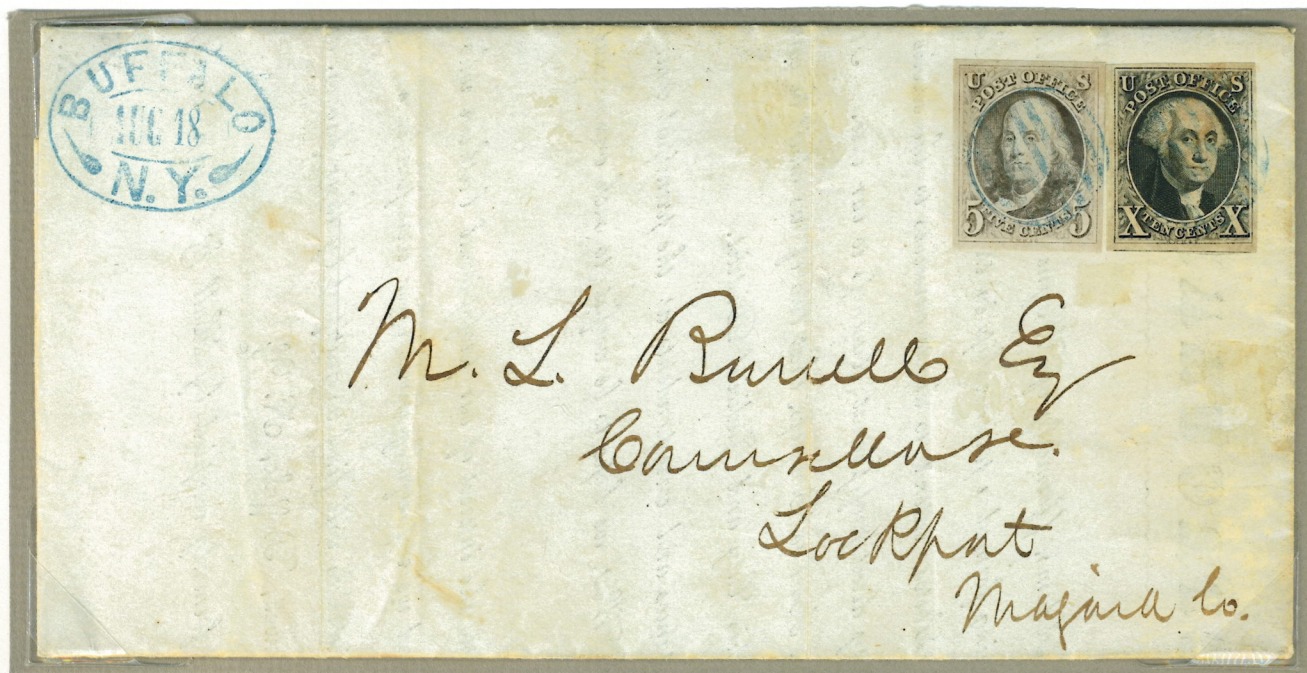 BUFFALO
AUG 18
N.Y.
U S
POST OFFICE
5 FIVE CENTS 5
U S
POST OFFICE
X TEN CENTS X
M. L. Burrell Esq
Counsellor.
Lockport
Niagara Co.